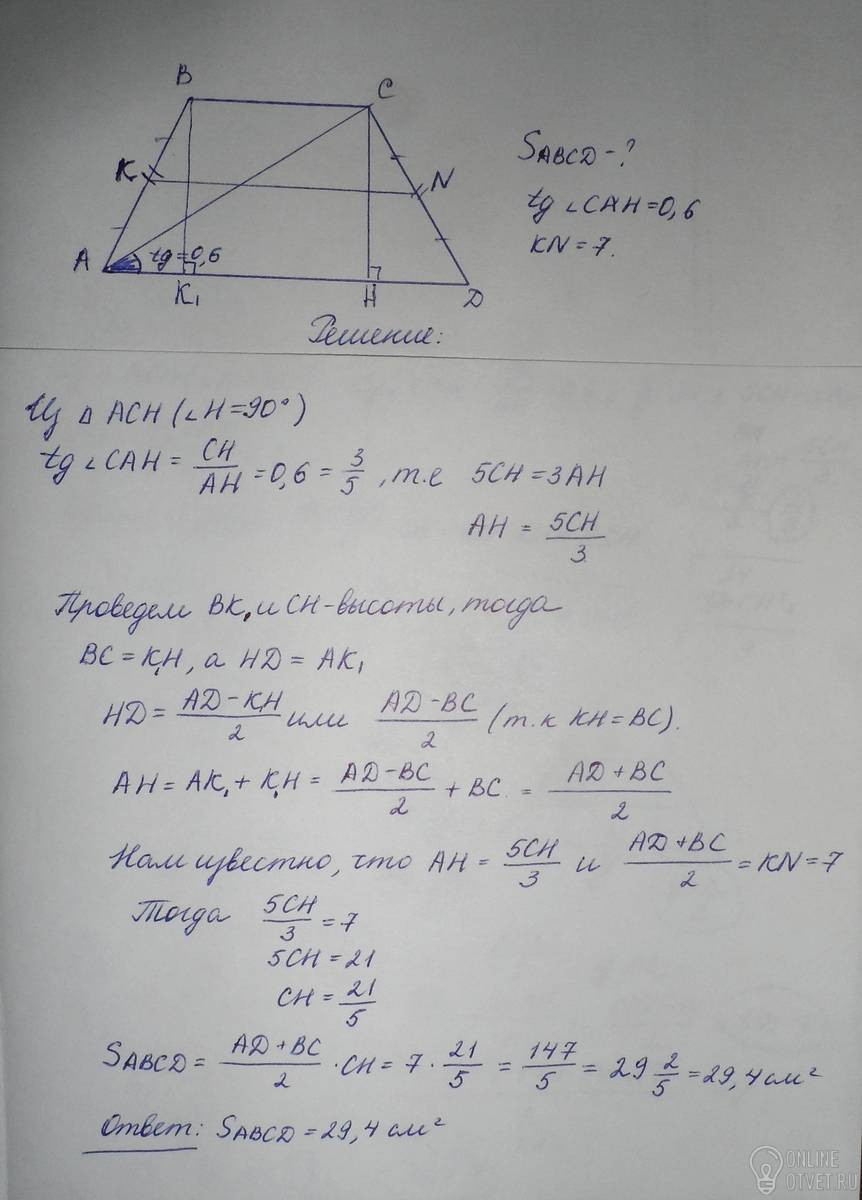 B
C
K
N
A
tg=0,6
K₁
H
D
SABCD-?
tg∠CAH=0,6
KN=7.
Решение:
Из Δ ACH (∠H=90°)
tg∠CAH = CH/AH = 0,6 = 3/5, т.е 5CH=3AH
AH = 5CH/3
Проведем BK₁ и CH-высоты, тогда
BC=K₁H, а HD=AK₁
HD= AD-K₁H/2 или AD-BC/2 (т.к KH=BC).
AH=AK₁+K₁H= AD-BC/2 + BC. = AD+BC/2
Нам известно, что AH= 5CH/3 и AD+BC/2 =KN=7
Тогда 5CH/3 =7
5CH=21
CH= 21/5
SABCD= AD+BC/2 ·CH=7· 21/5 = 147/5 = 29 2/5 =29,4см²
Ответ: SABCD=29,4см²
ONLINE
OTVET.RU